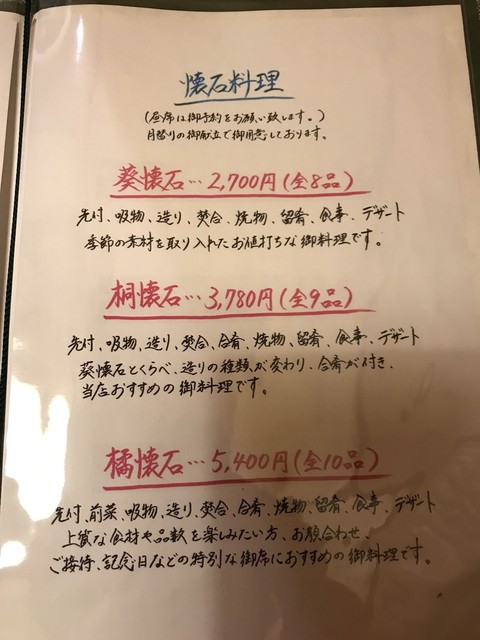 懐石料理
(昼席は御予約をお願い致します。)
月替りの御献立で御用意しております。
葵懐石…2,700円(全8品)
先付、吸物、造り、焚合、焼物、留肴、食事、デザート
季節の素材を取り入れたお値打ちな御料理です。
桐懐石…3,780円(全9品)
先付、吸物、造り、焚合、合肴、焼物、留肴、食事、デザート
葵懐石とくらべ、造りの種類が変わり、合肴が付き、
当店おすすめの御料理です。
橘懐石…5,400円(全10品)
先付、前菜、吸物、造り、焚合、合肴、焼物、留肴、食事、デザート
上質な食材や品数を楽しみたい方、お顔合わせ、
ご接待、記念日などの特別な御席におすすめの御料理です。